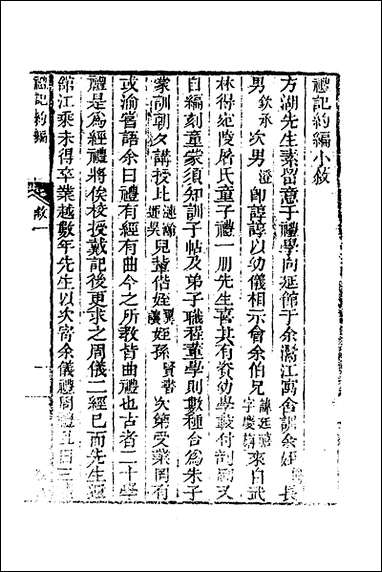 禮記約編小敘
方湖先生素留意于禮學向延館于余漪江寓舍訓余姪長
男欽承次男澄卽諄諄以幼儀相示會余伯兄諱廷字慶來自武
林得寧陵屠氏童子禮一冊先生喜其有資幼學裁付剞劂又
自編刻童蒙須知訓子帖及弟子職程董學則數種合為朱子
蒙訓朝夕講授比兒輩偕姪姪孫次第受業罔有
或渝嘗語余曰禮有經有曲今之所教皆曲禮也古者二十學
禮是為經禮將俟校授戴記後更求之周儀二經已而先生還
舘江乘未得卒業越數年先生以次寄余儀禮周禮
禮記約編
敘一